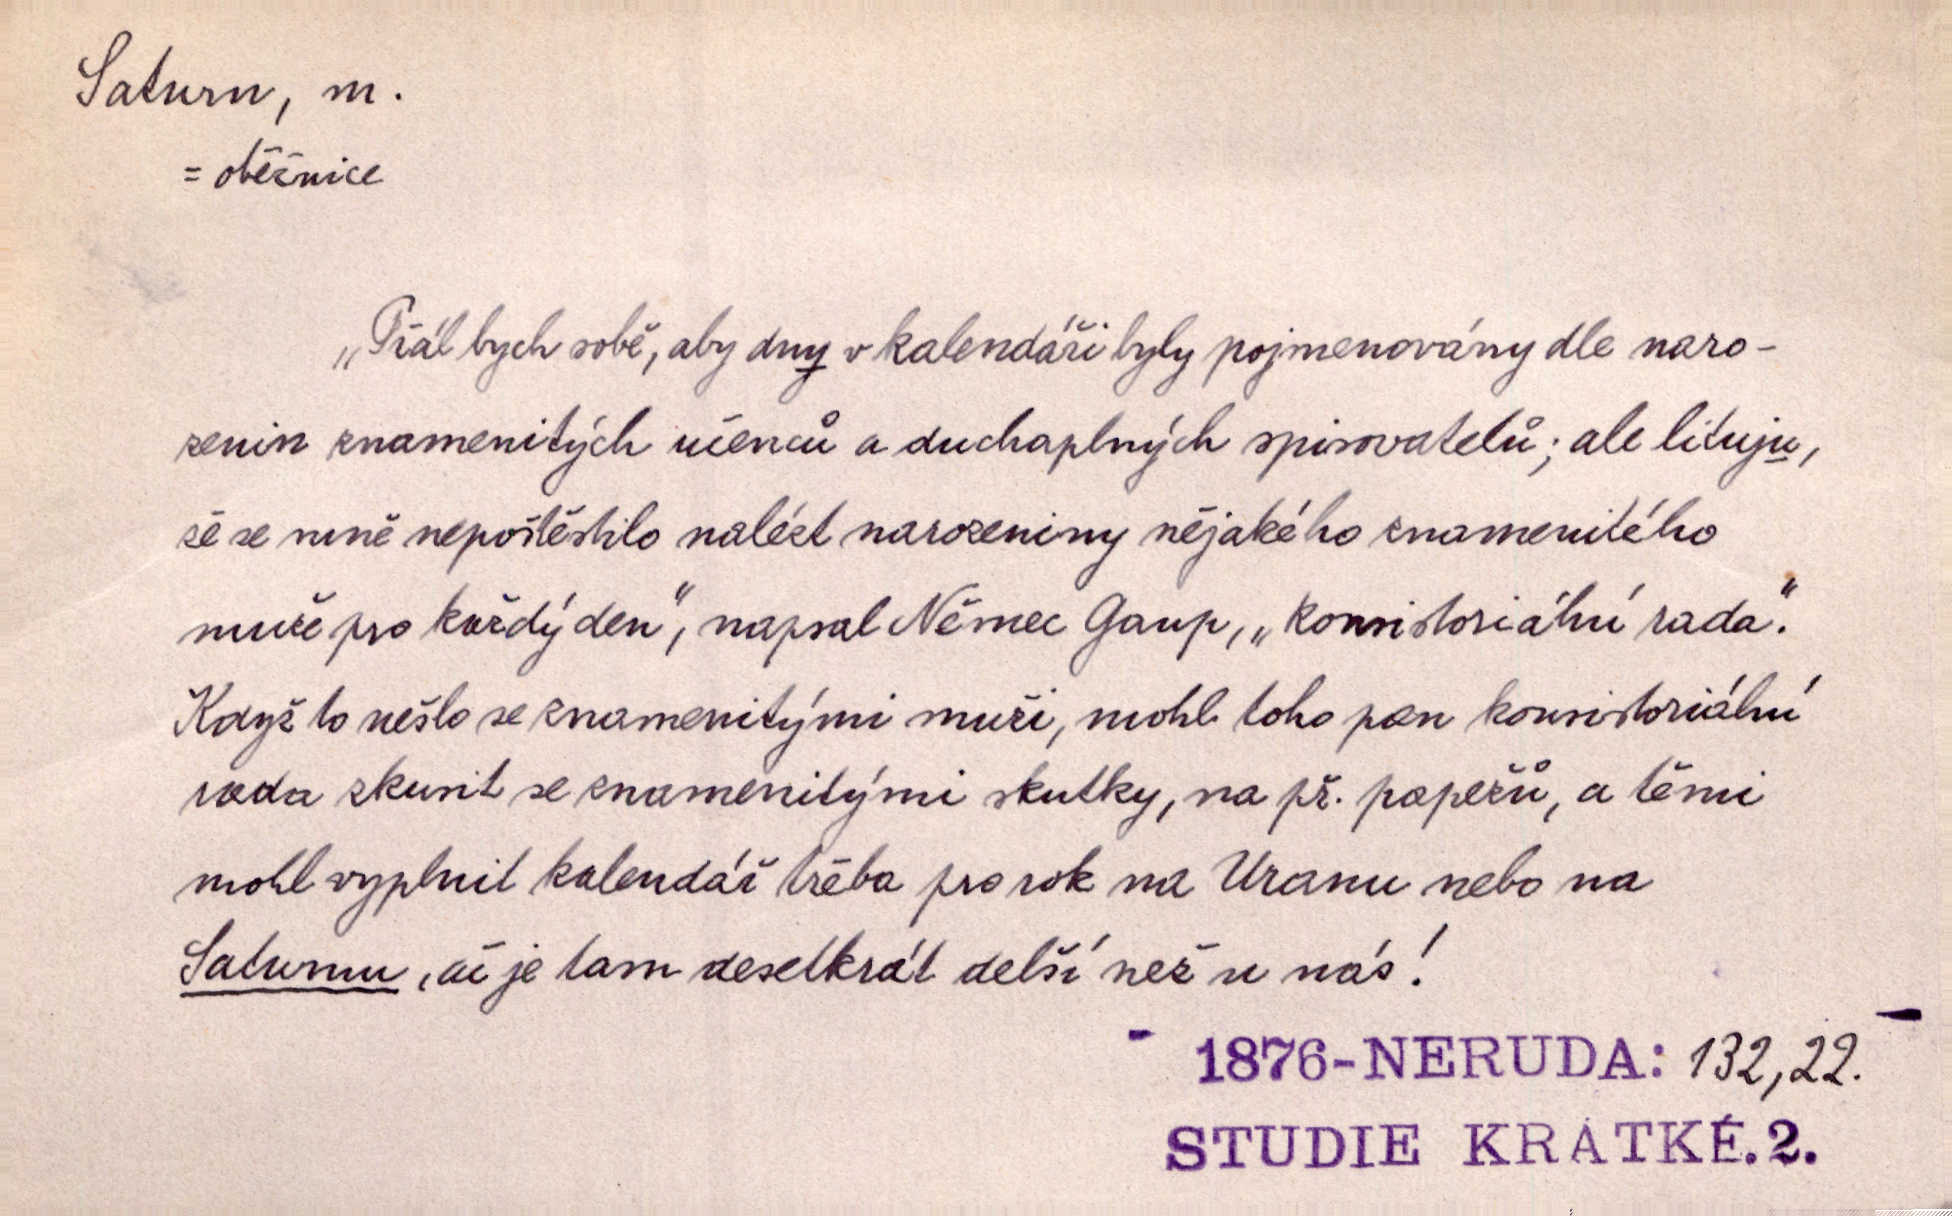 Saturn, m.
= oběžnice
„Přál bych sobě, aby dny v kalendáři byly pojmenovány dle naro-
zenin znamenitých učenců a duchaplných spisovatelů; ale lituju,
že se mně nepoštěstilo nalézt narozeniny nějakého znamenitého
muže pro každý den“, napsal Němec Gaup, „konsistoriální rada“.
Když to nešlo se znamenitými muži, mohl toho pan konsistoriální
rada zkusit se znamenitými skutky, na př. papežů, a těmi
mohl vyplnit kalendář třeba pro rok na Uranu nebo na
Saturnu, ač je tam desetkrát delší než u nás!
1876-NERUDA: 132,22.
STUDIE KRÁTKÉ.2.